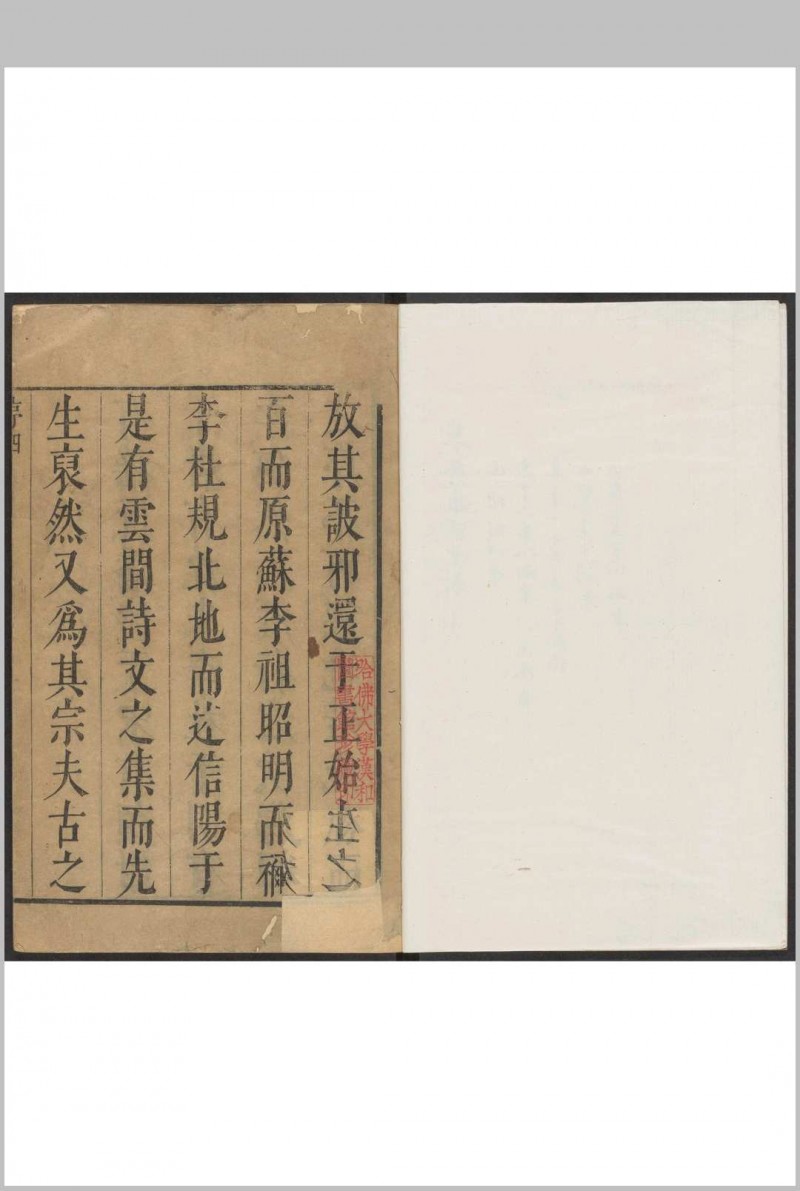 放其詖邪還于正始主之
百而原蘇李祖昭明而禰
李杜規北地而述信陽于
是有雲間詩文之集而先
生裒然又爲其宗夫古之
序四
哈佛大學漢和
圖書館